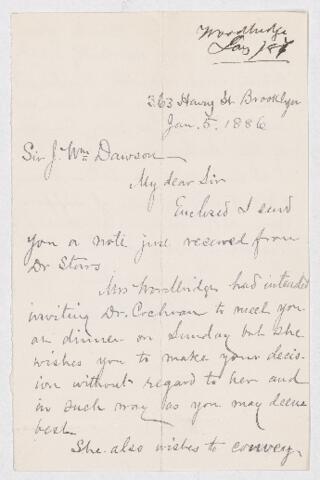 Woodbridge
Jan 7 / 87
363 Henry St Brooklyn
Jan. 5. 1886
Sir J. Wm Dawson
My dear Sir
Enclosed I send
you a note just received from
Dr Storrs
Mrs Woodbridge had intended
inviting Dr. Cochran to meet you
at dinner on Sunday but she
wishes you to make your decis-
ion without regard to her and
in such way as you may deem
best.
She also wishes to convey